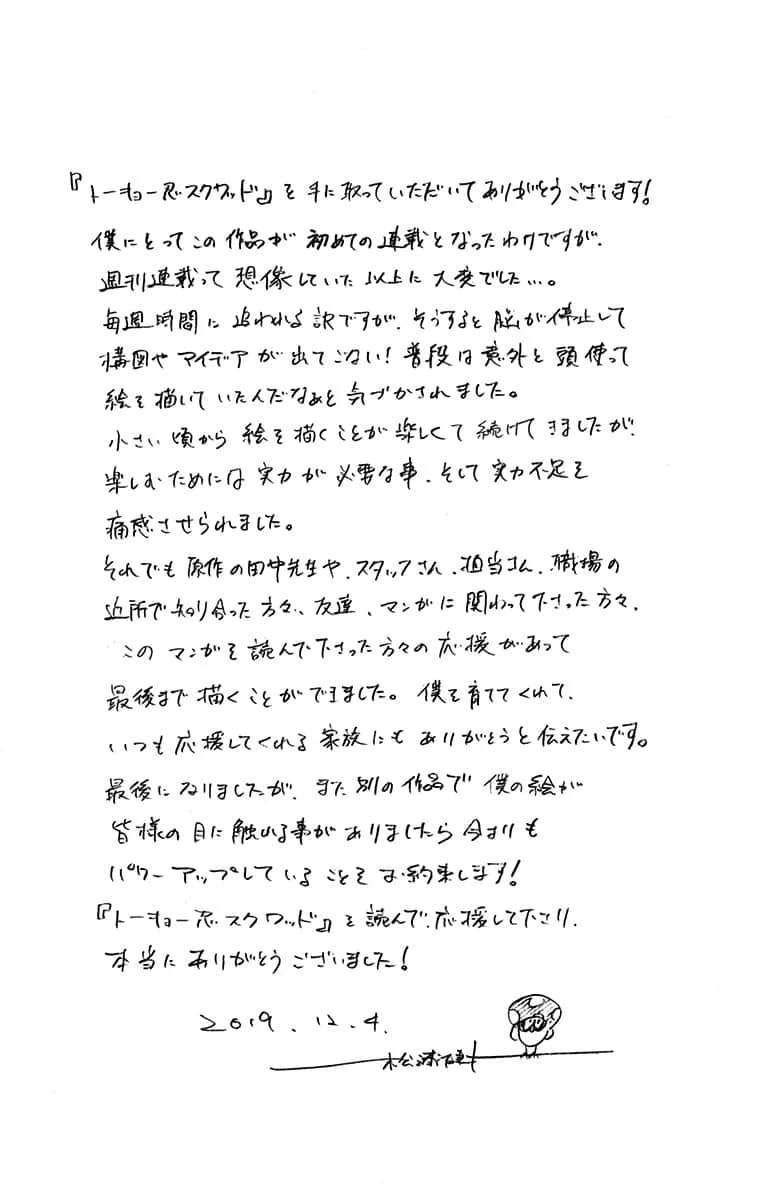 『トーキョー忍スクワッド』を手に取っていただいてありがとうございます!
僕にとってこの作品が初めての連載となったわけですが、
週刊連載って想像していた以上に大変でした…。
毎週時間に追われる訳ですが、そうすると脳が停止して
構図やアイデアが出てこない!普段は意外と頭使って
絵を描いていたんだなぁと気づかされました。
小さい頃から絵を描くことが楽しくて続けてきましたが、
楽しむためには実力が必要な事、そして実力不足を
痛感させられました。
それでも原作の田中先生や、スタッフさん、担当さん、職場の
近所で知り合った方々、友達、マンガに関わって下さった方々、
このマンガを読んで下さった方々の応援があって
最後まで描くことができました。僕を育ててくれて、
いつも応援してくれる家族にもありがとうと伝えたいです。
最後になりましたが、また別の作品で僕の絵が
皆様の目に触れる事がありましたら今よりも
パワーアップしていることをお約束します!
『トーキョー忍スクワッド』を読んで、応援して下さり、
本当にありがとうございました!
2019.12.4.
松浦健人